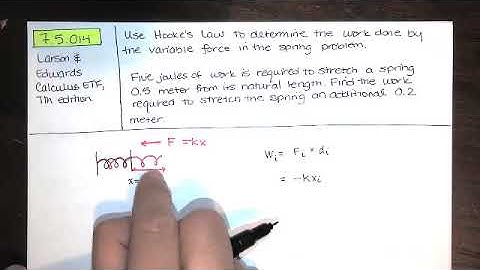 7.5.014
Larson &
Edwards
Calculus ETF,
7th edition
Use Hooke's Law to determine the work done by
the variable force in the spring problem.
Five joules of work is required to stretch a spring
0.5 meter from its natural length. Find the work
required to stretch the spring an additional 0.2
meter.
F = kx
x=
Wi = Fi * di
= -kxi